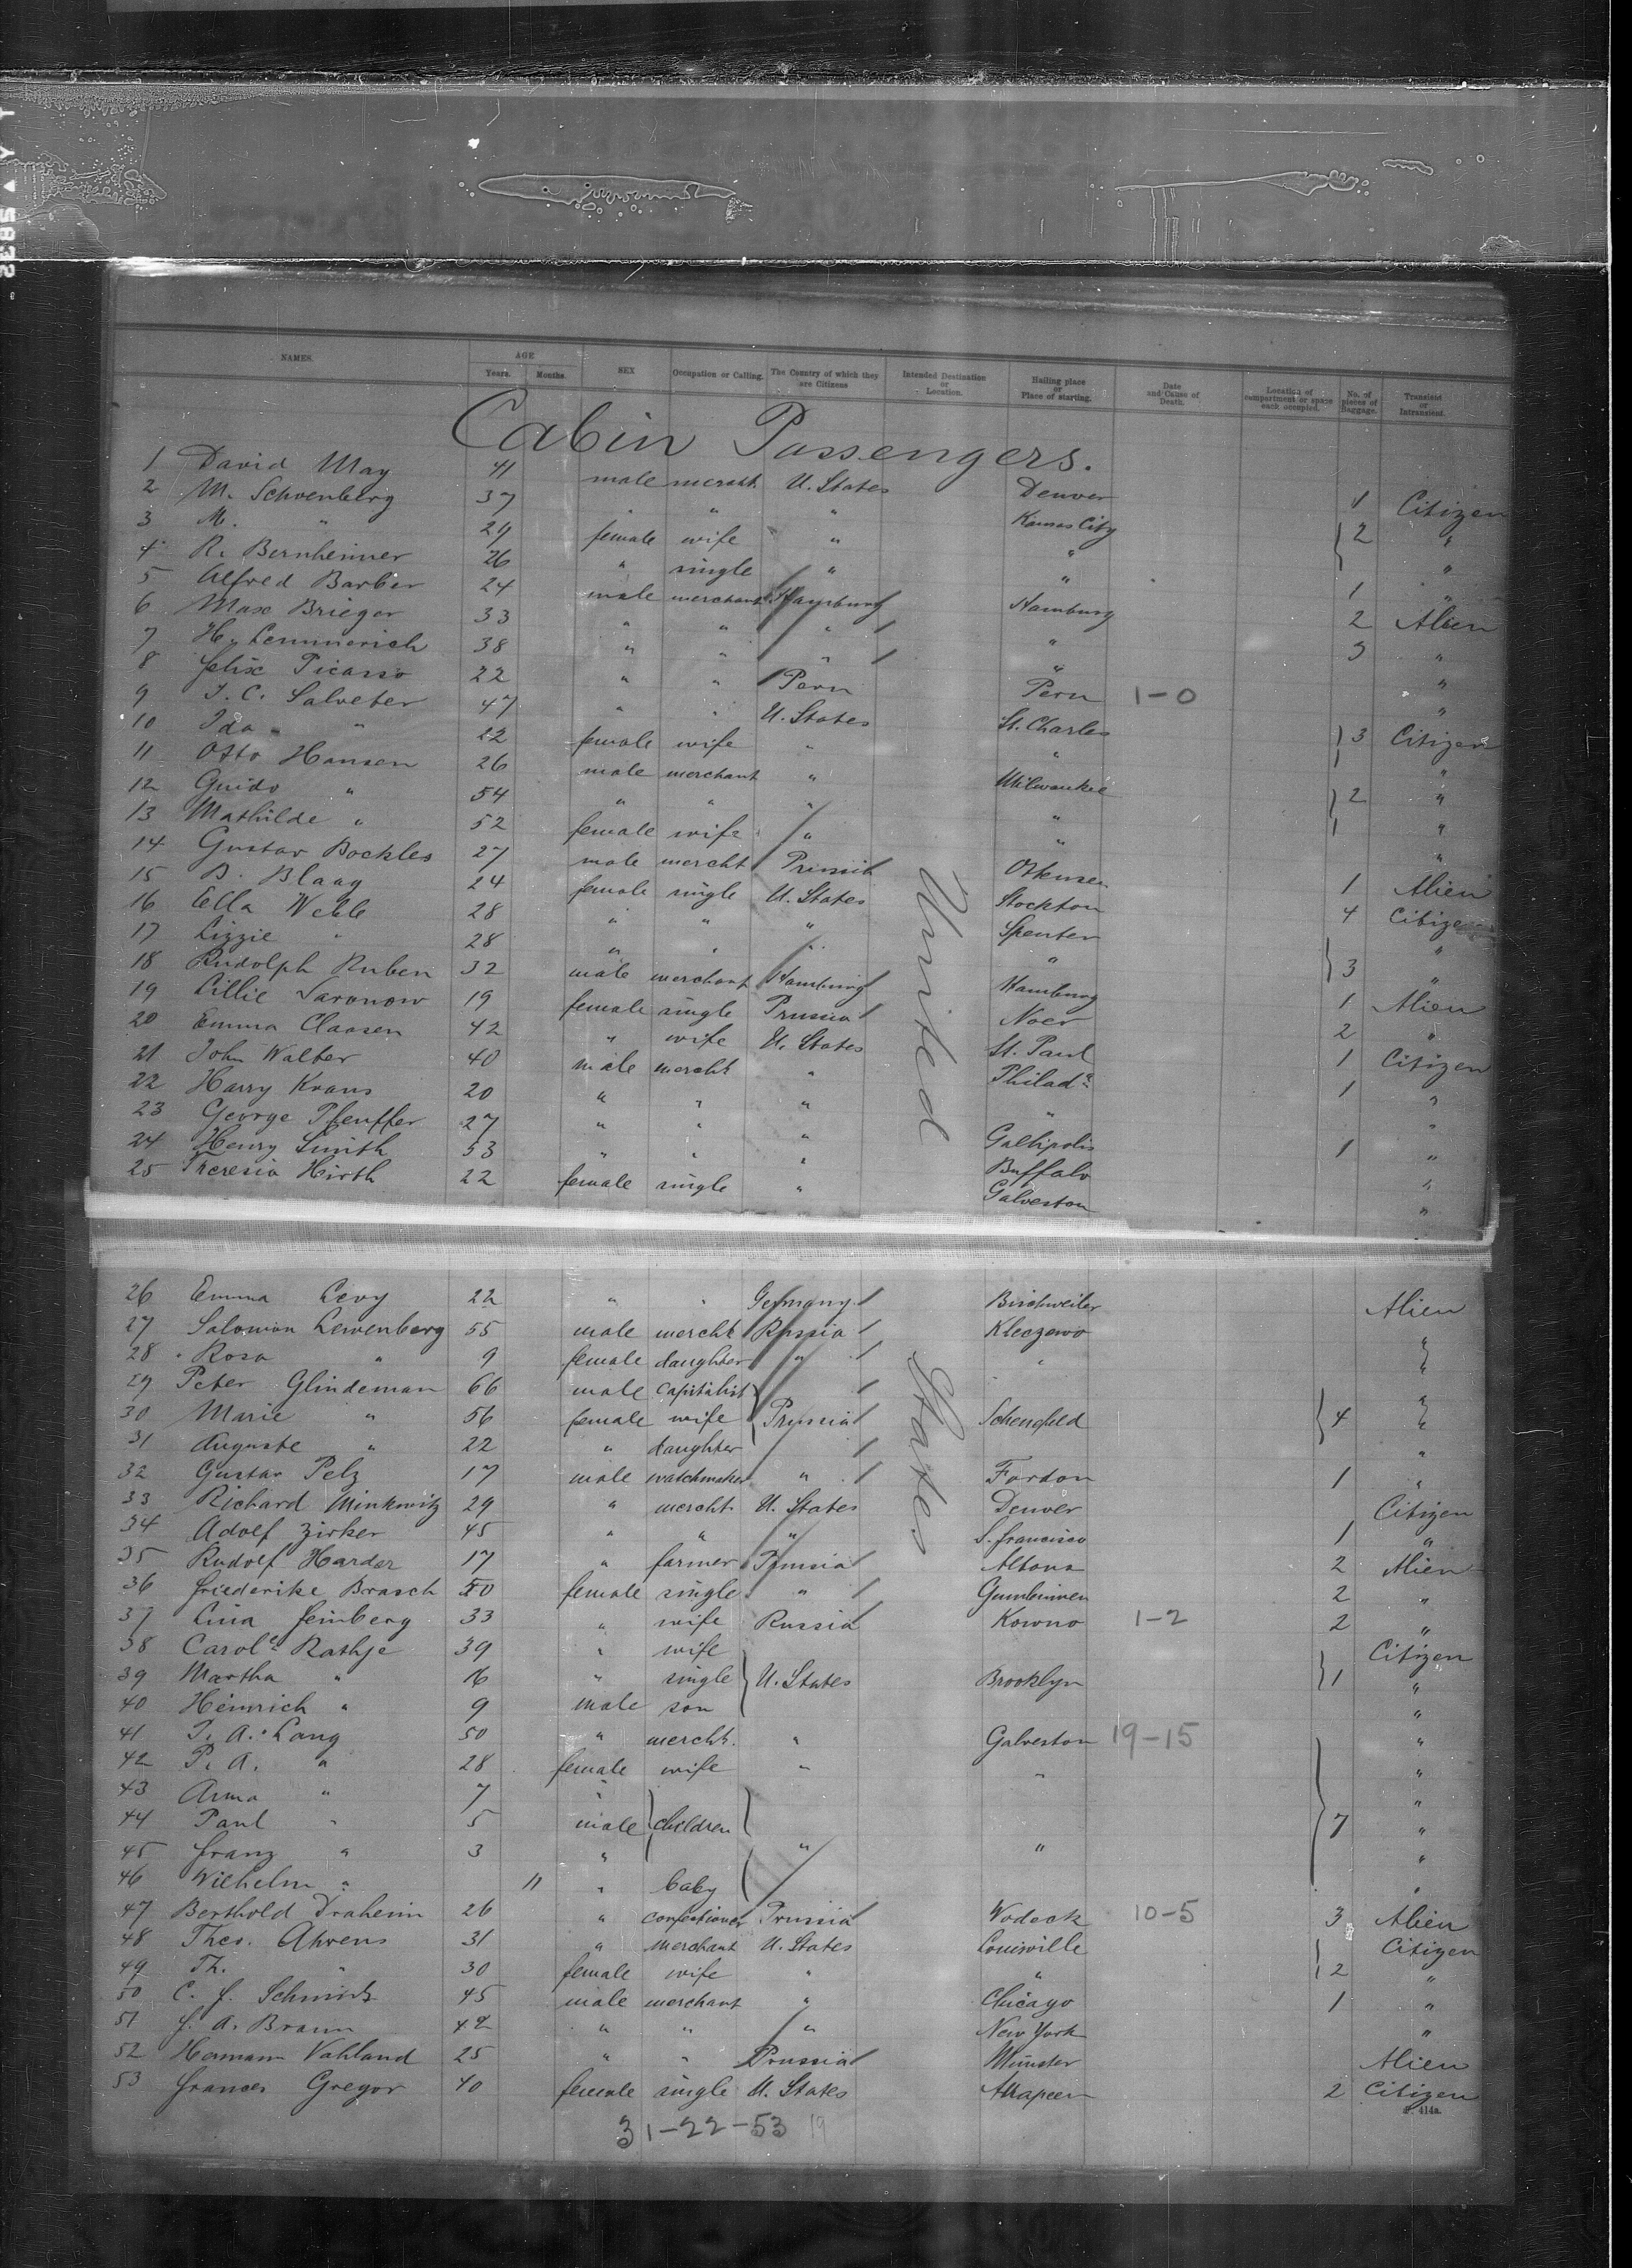 NAMES. AGE SEX Occupation or Calling. The Country of which they are Citizens Intended Destination or Location. Hailing place or Place of starting. Date and Cause of Death. Location of compartment or space each occupied. No. of pieces of Baggage. Transient or Intransient.
Years. Months.
Cabin Passengers.
1 David May 41 male mercht U. States Denver 1 Citizen
2 M. Schoenberg 37 " " " Kansas City 2 "
3 M. " 29 female wife " " "
4 R. Bernheimer 26 " single " " 1 "
5 Alfred Barber 24 male merchant Hamburg Hamburg 2 Alien
6 Max Brieger 33 " " " " 3 "
7 H. Lemmerich 38 " " " " "
8 Felix Picasso 22 " " Peru Peru 1-0 "
9 J. C. Salveter 47 " " U. States St. Charles 3 Citizen
10 Ida " 22 female wife " " "
11 Otto Hansen 26 male merchant " Milwaukee 2 "
12 Guido " 54 " " " " "
13 Mathilde " 52 female wife " " "
14 Gustav Bockles 27 male mercht Prussia 1 Alien
15 B. Blaag 24 female single U. States Stockton 4 Citizen
16 Ella Welle 28 " " " "
17 Lizzie " 28 " " " " 3 "
18 Rudolph Ruben 32 male merchant Hamburg Hamburg 1 Alien
19 Lillie Saronow 19 female single Prussia Noer 2 "
20 Emma Claasen 42 " wife U. States St. Paul 1 Citizen
21 John Walter 40 male mercht " Philada 1 "
22 Harry Kraus 20 " " " " "
23 George Pfeuffer 27 " " " Gallipolis 1 "
24 Henry Smith 53 " " " Buffalo "
25 Theresia Hirth 22 female single " Galveston "
United
26 Emma Levy 22 " " Germany Bischweiler Alien
27 Salomon Lewenberg 55 male mercht Russia Kleczewo "
28 Rosa " 9 female daughter " " "
29 Peter Glindeman 66 male capitalist "
30 Marie " 56 female wife Prussia Schenefeld 4 "
31 Auguste " 22 " daughter "
32 Gustav Pelz 17 male watchmaker " Fordon 1 "
33 Richard Minkwitz 29 " mercht. U. States Denver Citizen
34 Adolf Zirker 45 " " " S. francisco 1 "
35 Rudolf Harder 17 " farmer Prussia Altona 2 Alien
36 Friederike Brasch 50 female single " Gumbinnen 2 "
37 Lina Feinberg 33 " wife Russia Kowno 1-2 2 "
38 Carole Rathje 39 " wife Citizen
39 Martha " 16 " single U. States Brooklyn 1 "
40 Heinrich " 9 male son "
41 P. A. Lang 50 " mercht. " Galveston 19-15 "
42 P. A. " 28 female wife " " "
43 Arma " 7 " "
44 Paul " 5 male children 7 "
45 Franz " 3 " " " "
46 Wilhelm " 11 " baby "
47 Berthold Draheim 26 " confectioner Prussia Wodeck 10-5 3 Alien
48 Theo. Ahrens 31 " merchant U. States Louisville Citizen
49 Th. " 30 female wife " " 2 "
50 C. F. Schmidt 45 male merchant " Chicago 1 "
51 F. A. Braun 42 " " " New York "
52 Hermann Vahland 25 " " Prussia Münster Alien
53 Frances Gregor 40 female single U. States 2 Citizen
States
31-22-53 19
414a.